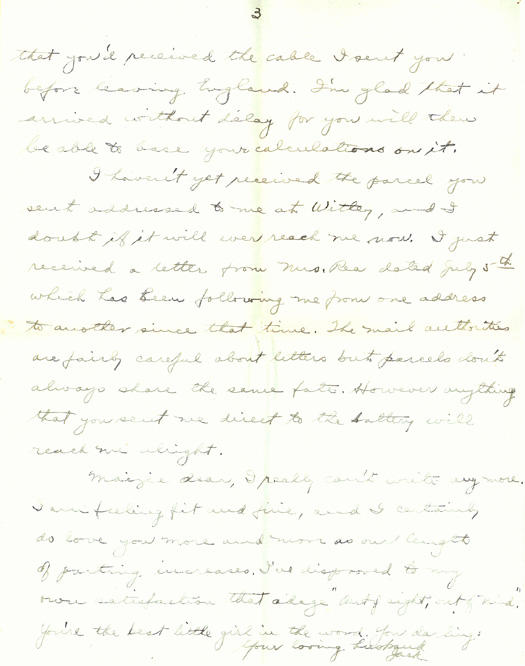 3
that you'd received the cable I sent you
before leaving England. I'm glad that it
arrived without delay for you will then
be able to base your calculations on it.
I haven't yet received the parcel you
sent addressed to me at Witley, and I
doubt if it will ever reach me now. I just
received a letter from Mrs. Rea dated July 5th
which has been following me from one address
to another since that time. The mail authorities
are fairly careful about letters but parcels don't
always share the same fate. However anything
that you sent me direct to the battery will
reach me alright.
Maizie dear, I really can't write any more.
I am feeling fit and fine, and I certainly
do love you more and more as our length
of parting increases. I've disproved to my
own satisfaction that adage "Out of sight, out of mind."
You're the best little girl in the world. You darling.
Your loving husband
Jack